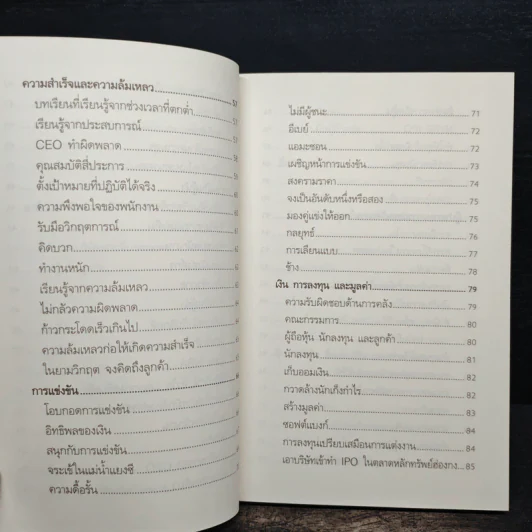 ความสำเร็จและความล้มเหลว
บทเรียนที่เรียนรู้จากช่วงเวลาที่ตกต่ำ
เรียนรู้จากประสบการณ์
CEO ทำผิดพลาด
คุณสมบัติสี่ประการ
ตั้งเป้าหมายที่ปฏิบัติได้จริง
ความพึงพอใจของพนักงาน
รับมือวิกฤตการณ์
คิดบวก
ทำงานหนัก
เรียนรู้จากความล้มเหลว
ไม่กลัวความผิดพลาด
ก้าวกระโดดเร็วเกินไป
ความล้มเหลวก่อให้เกิดความสำเร็จ
ในยามวิกฤต จงคิดถึงลูกค้า
การแข่งขัน
โอบกอดการแข่งขัน
อิทธิพลของเงิน
สนุกกับการแข่งขัน
จระเข้ในแม่น้ำแยงซี
ความดื้อรั้น
ไม่มีผู้ชนะ 71
อีเบย์ 72
แอมะซอน 72
เผชิญหน้าการแข่งขัน 73
สงครามราคา 74
จงเป็นอันดับหนึ่งหรือสอง 75
มองคู่แข่งให้ออก 75
กลยุทธ์ 76
การเลียนแบบ 77
ช้าง 78
เงิน การลงทุน และมูลค่า 79
ความรับผิดชอบด้านการคลัง 79
คณะกรรมการ 80
ผู้ถือหุ้น นักลงทุน และลูกค้า 80
นักลงทุน 81
เก็บออมเงิน 82
กวาดล้างนักเก็งกำไร 82
สร้างมูลค่า 83
ซอฟต์แบงก์ 84
การลงทุนเปรียบเสมือนการแต่งงาน 84
เอาบริษัทเข้าทำ IPO ในตลาดหลักทรัพย์ฮ่องกง 85